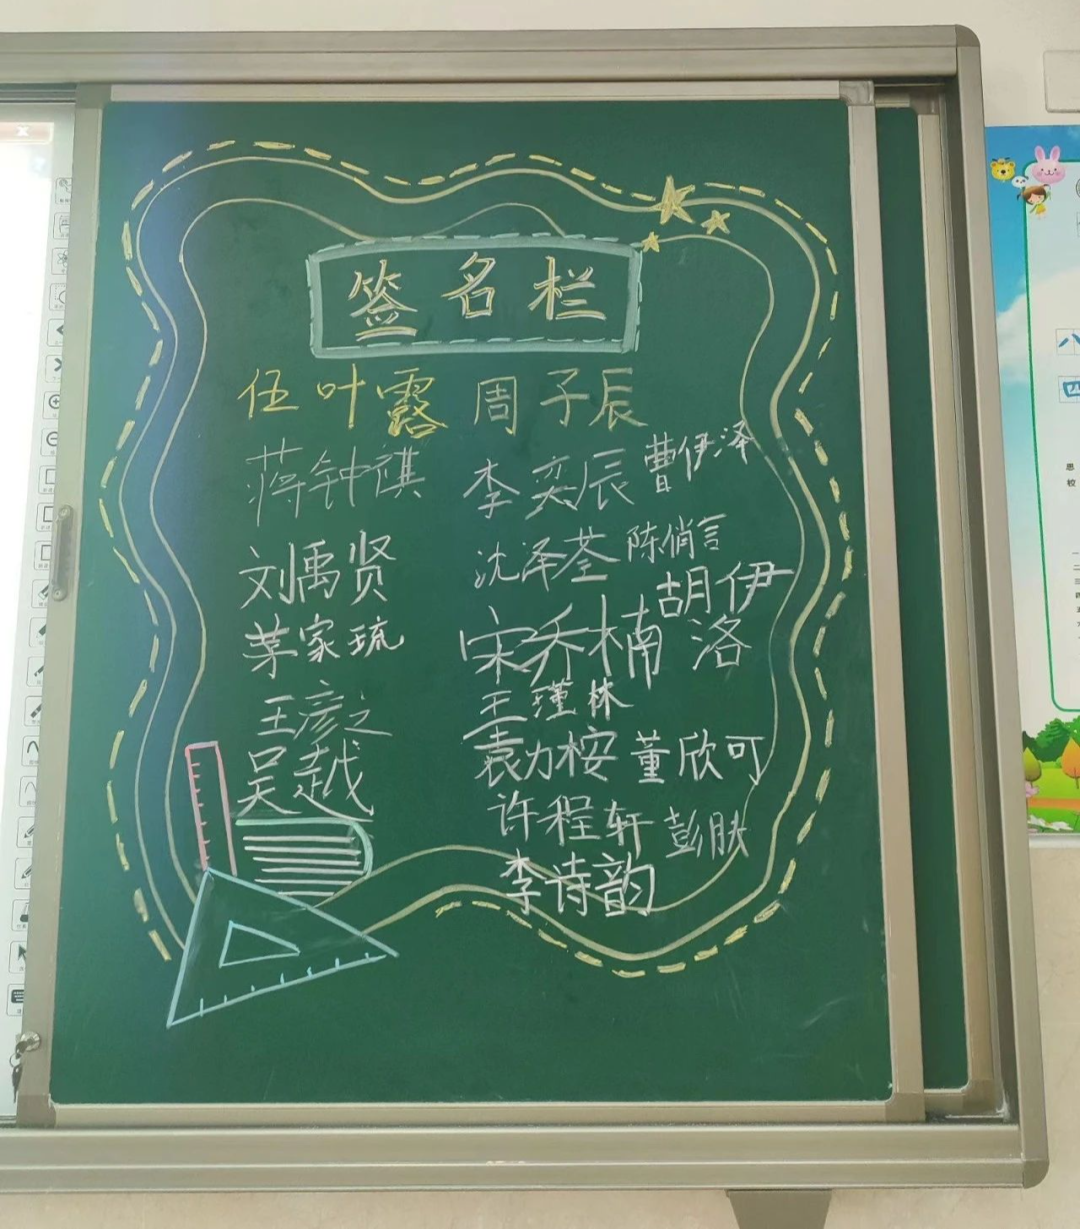 签名栏
伍叶露 周子辰
蒋钟祺 李奕辰 曹伊泽
刘禹贤 沈泽荃 陈俏言
茅家琉 宋乔楠 胡伊洛
王彦之 王瑾林
吴越 袁力桉 董欣可
许程轩 彭肤
李诗韵
八
四